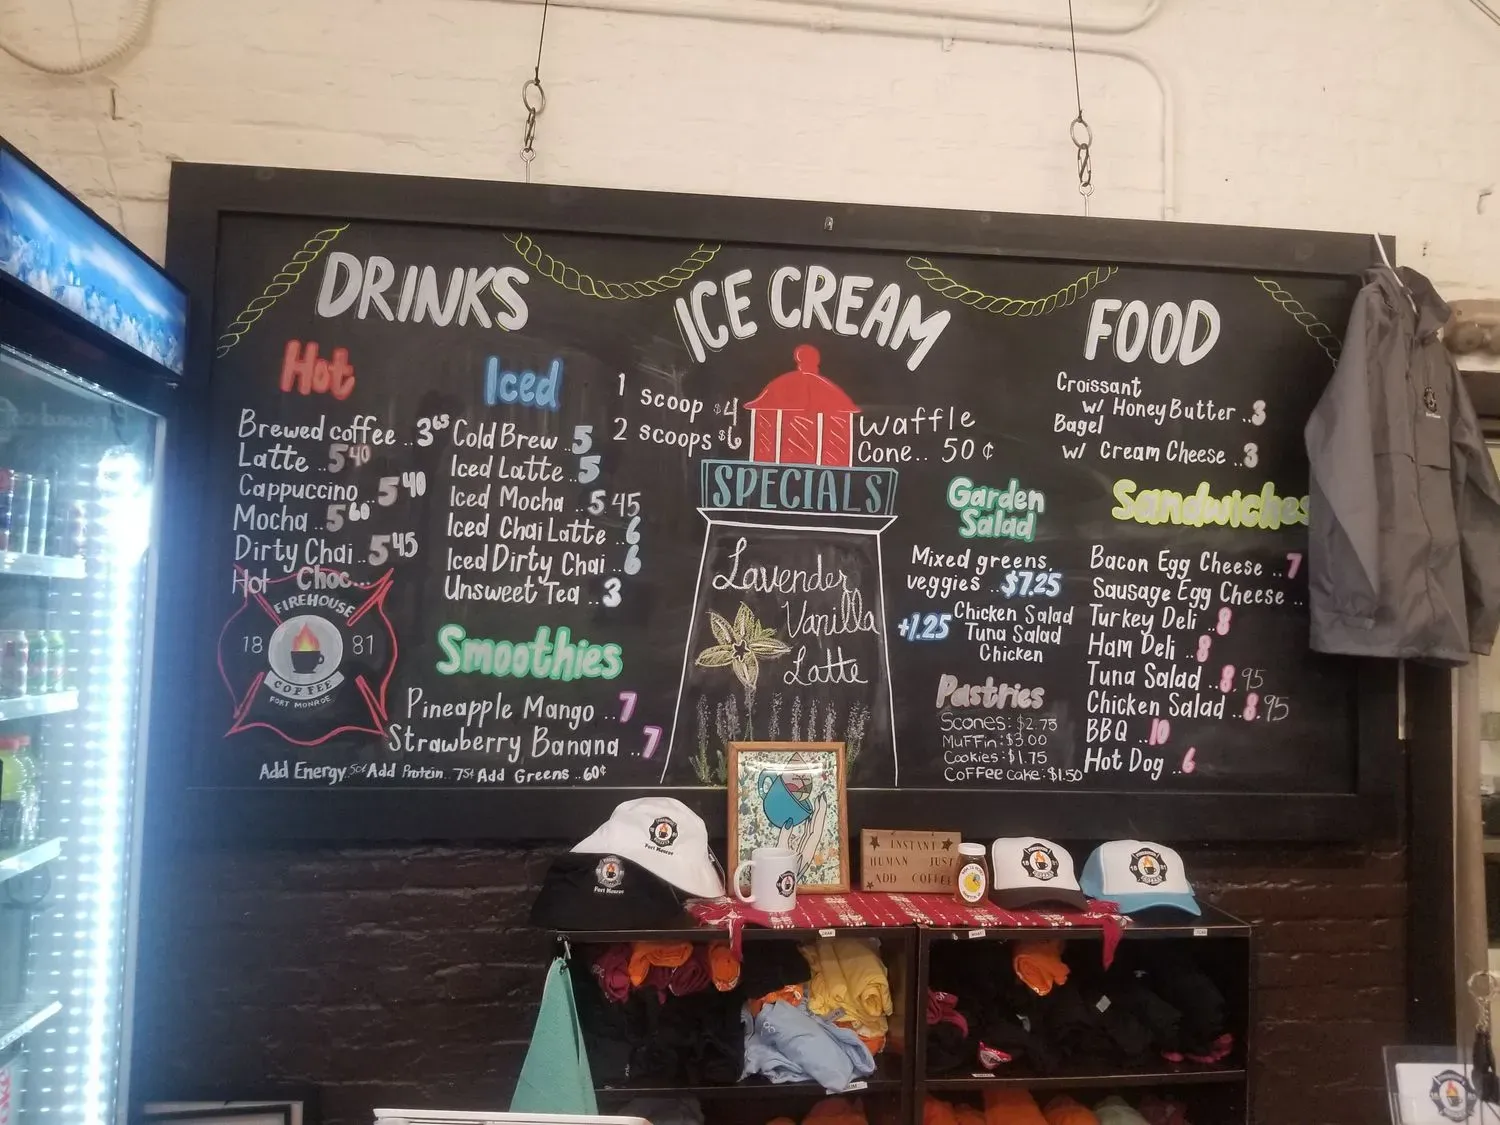 DRINKS
Hot
Brewed coffee ..3
Latte ..5 40
Cappuccino ..5 40
Mocha ..5 60
Dirty Chai ..5 45
Hot Choc...
FIREHOUSE
18 81
COFFEE
FORT MONROE
Iced
Cold Brew ..5
Iced Latte ..5
Iced Mocha ..5 45
Iced Chai Latte ..6
Iced Dirty Chai ..6
Unsweet Tea ..3
Smoothies
Pineapple Mango ..7
Strawberry Banana ..7
Add Energy..50¢ Add Protein..75¢ Add Greens..60¢
ICE CREAM
1 scoop $4
2 scoops $6
Waffle
Cone.. 50 ¢
SPECIALS
Lavender
Vanilla
Latte
Garden
Salad
Mixed greens,
veggies ..$7.25
+1.25 Chicken Salad
Tuna Salad
Chicken
Pastries
Scones: $2.75
Muffin: $3.00
Cookies: $1.75
Coffee cake: $1.50
FOOD
Croissant
w/ Honey Butter ..3
Bagel
w/ Cream Cheese ..3
Sandwiches
Bacon Egg Cheese ..7
Sausage Egg Cheese ..
Turkey Deli ..8
Ham Deli ..8
Tuna Salad ..8.95
Chicken Salad ..8.95
BBQ ..10
Hot Dog ..6
Fort Monroe
Fort Monroe
INSTANT
HUMAN JUST
ADD COFFEE